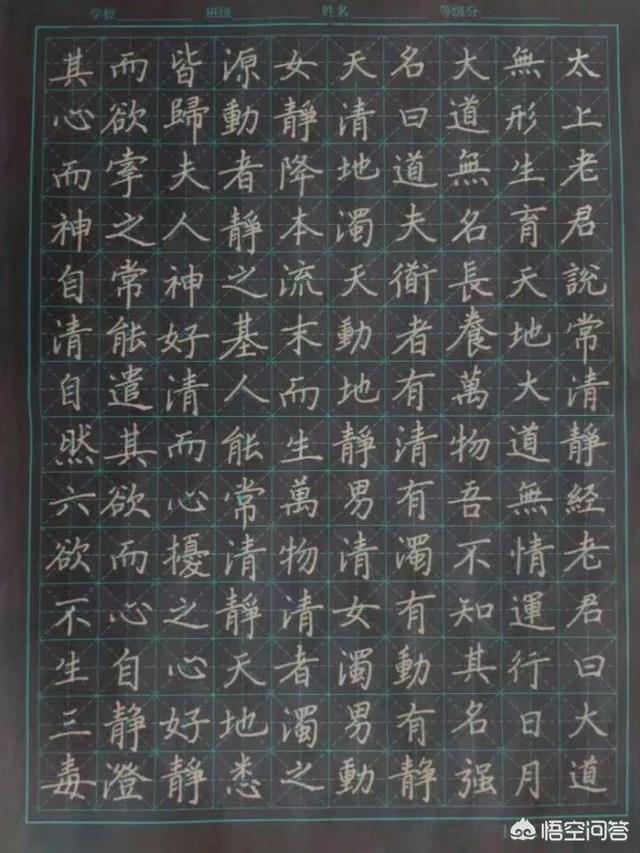 学校 班级 姓名 等级分
太上老君說常清靜経老君曰大道
無形生育天地大道無情運行日月
大道無名長養萬物吾不知其名强
名曰道夫衜者有清有濁有動有靜
天清地濁天動地靜男清女濁男動
女靜降本流末而生萬物清者濁之
源動者靜之基人能常清靜天地悉
皆歸夫人神好清而心擾之心好靜
而欲牽之常能遣其欲而心自靜澄
其心而神自清自然六欲不生三毒
悟空问答